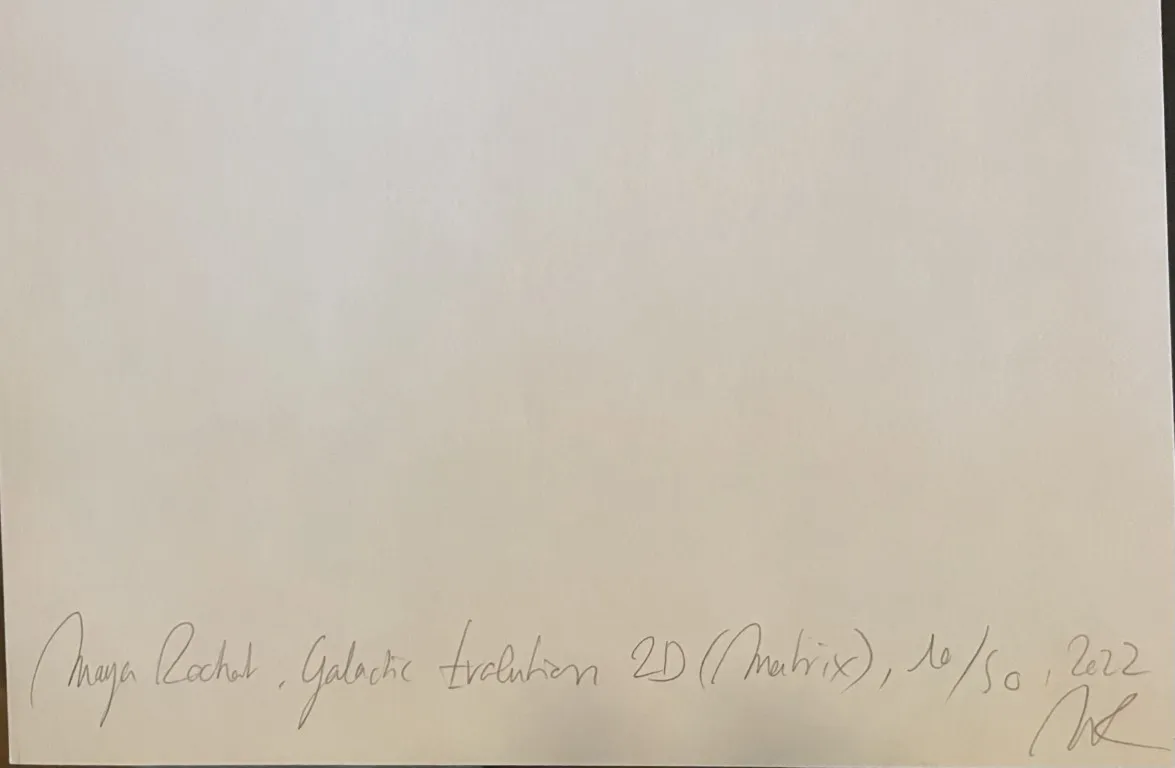 Maya Rochat, Galactic Evolution 2D (Matrix), 10/50, 2022
MR